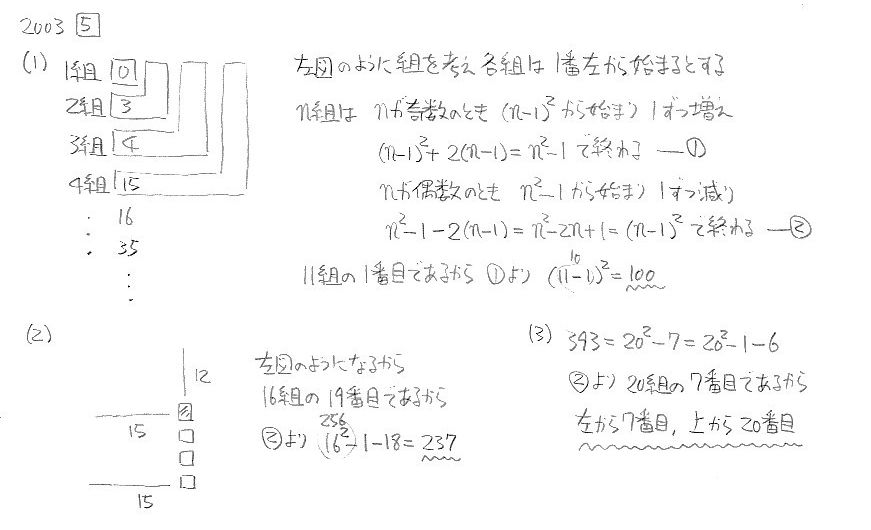 2003 5
(1)
1組 0
2組 3
3組 4
4組 15
16
35
左図のように組を考え各組は1番左から始まるとする
n組は nが奇数のとき (n-1)²から始まり1ずつ増え
(n-1)²+2(n-1)=n²-1で終わる ―①
nが偶数のとき n²-1から始まり1ずつ減り
n²-1-2(n-1)=n²-2n+1=(n-1)²で終わる ―②
11組の1番目であるから ①より (11-1)²=100
10
(2)
12
15
15
左図のようになるから
16組の19番目であるから
256
②より (16²)-1-18=237
(3) 393=20²-7=20²-1-6
②より 20組の7番目であるから
左から7番目, 上から20番目